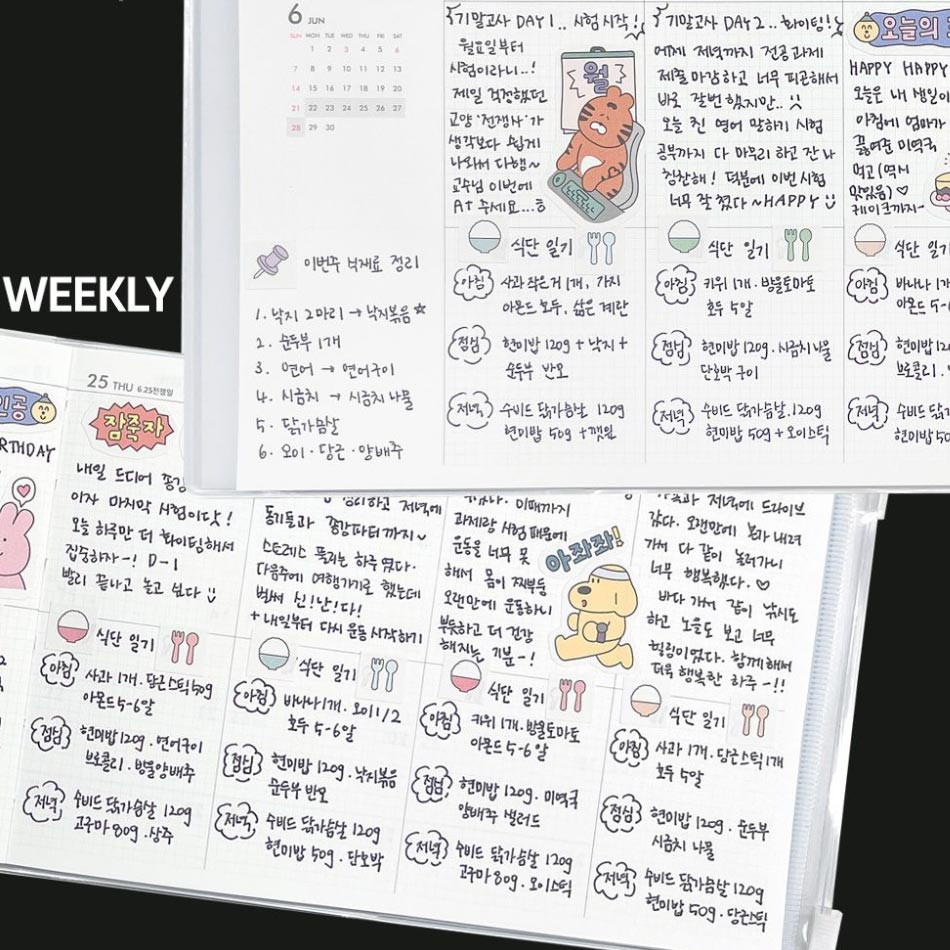 WEEKLY
6 JUN
SUN MON TUE WED THU FRI SAT
1 2 3 4 5 6
7 8 9 10 11 12 13
14 15 16 17 18 19 20
21 22 23 24 25 26 27
28 29 30
이번주 식재료 정리
1. 낙지 2마리 → 낙지볶음☆
2. 순두부 1개
3. 연어 → 연어구이
4. 시금치 → 시금치 나물
5. 닭가슴살
6. 오이 · 당근 · 양배추
기말고사 DAY 1.. 시험 시작!
월요일부터
시험이라니..!
제일 걱정했던
교양 '전쟁사'가
생각보다 쉽게
나와서 다행~
교수님 이번에
A+ 주세요...ㅎ
월
식단 일기
아침 사과 작은거 1개, 가지
아몬드 호두, 삶은 계란
점심 현미밥 120g + 낙지 +
순두부 반모
저녁 수비드 닭가슴살 120g
현미밥 50g + 깻잎
기말고사 DAY 2.. 화이팅!
어제 저녁까지 전공과제
제출 마감하고 너무 피곤해서
바로 잘뻔 했지만..
오늘 친 영어 말하기 시험
공부까지 다 마무리 하고 잔 나
칭찬해! 덕분에 이번 시험
너무 잘 쳤다 ~ HAPPY
식단 일기
아침 키위 1개 · 방울토마토
호두 5알
점심 현미밥 120g · 시금치나물
단호박 구이
저녁 수비드 닭가슴살 · 120g
현미밥 50g + 오이스틱
오늘의
HAPPY HAPPY
오늘은 내 생일이
아침에 엄마가
끓여준 미역국
먹고 (역시
맛있음) ♡
케이크까지~
식단
아침 바나나 1개
아몬드 5-6
점심 현미밥 12
브로콜리 ·
저녁 수비드 닭가
현미밥 50
인공
RTHDAY
25 THU 6.25전쟁일
잠죽자
내일 드디어 종강
이자 마지막 시험이닷!
오늘 하루만 더 화이팅해서
집중하자-! D-1
빨리 끝나고 놀고 싶다
식단 일기
아침 사과 1개 · 당근스틱 50g
아몬드 5-6알
점심 현미밥 120g · 연어구이
브로콜리 · 방울양배추
저녁 수비드 닭가슴살 120g
고구마 80g · 상추
정리하고 저녁에
동기들과 종강파티까지~
스트레스 풀리는 하루 였다.
다음주에 여행가기로 했는데
벌써 신!난!다!
+ 내일부터 다시 운동 시작하기
식단 일기
아침 바나나 1개 · 오이 1/2
호두 5-6알
점심 현미밥 120g · 낙지볶음
순두부 반모
저녁 수비드 닭가슴살 120g
현미밥 50g · 단호박
과제랑 시험 때문에
운동을 너무 못
해서 몸이 찌뿌둥
오랜만에 운동하니
뿌듯하고 더 건강
해지는 기분-!
아좌좌!
식단 일기
아침 키위 1개 · 방울토마토
아몬드 5-6알
점심 현미밥 120g · 미역국
양배추 샐러드
저녁 수비드 닭가슴살 120g
고구마 80g · 오이스틱
저녁에 드라이브
갔다. 오랜만에 본가 내려
가서 다 같이 놀러가니
너무 행복했다. ♡
바다 가서 같이 낚시도
하고 노을도 보고 너무
힐링이었다. 함께해서
더욱 행복한 하루 -!!
식단 일기
아침 사과 1개 · 당근스틱 1개
호두 5알
점심 현미밥 120g · 순두부
시금치 나물
저녁 수비드 닭가슴살 120g
현미밥 50g · 당근스틱